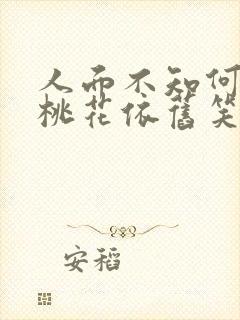 人而不知何
桃花依舊笑
安稻